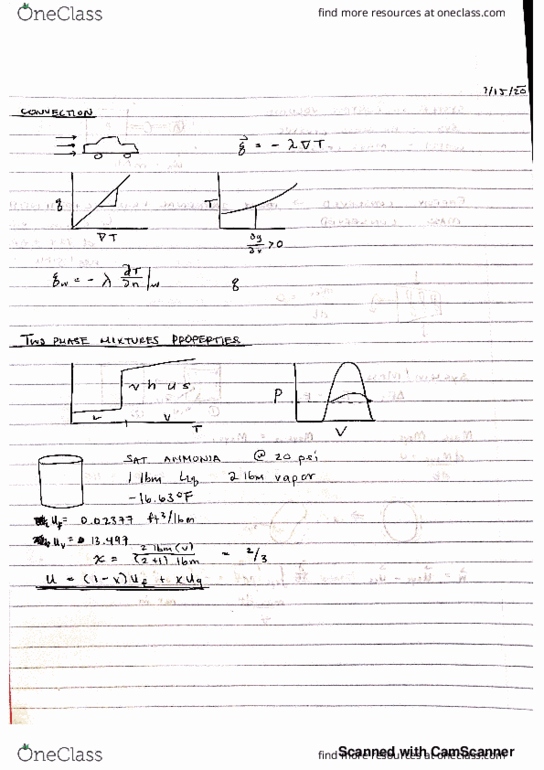 OneClass
find more resources at oneclass.com
7/15/20
CONVECTION
q = - λ ∇ T
q
∇ T
T
> 0
q_w = - λ ∂T/∂n |_w
q
TWO PHASE MIXTURES PROPERTIES
v h u s
L
V
T
P
V
SAT AMMONIA @ 20 psi
1 lbm liq 2 lbm vapor
-16.63°F
u_f = 0.02377 ft³/lbm
u_v = 13.497
x = 2 lbm (v) / (2+1) lbm = 2/3
u = (1-x)u_f + x u_g
OneClass
find more resources at oneclass.com
Scanned with CamScanner